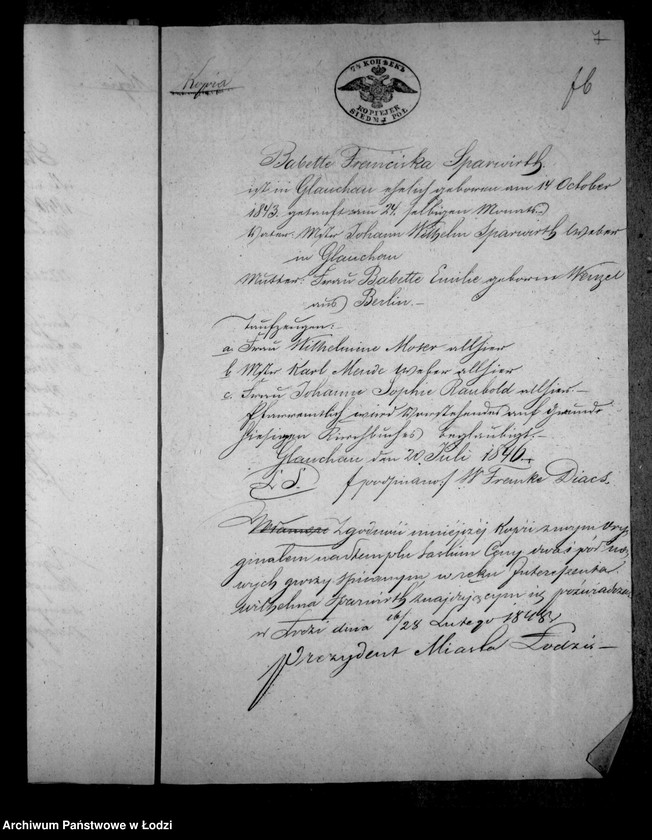 7
Kopia
7½ КОПѢЕКЪ
KOPIEJEK
SIEDM ½ POŁ
fb
Babette Franciska Sparwirth
ist in Glauchau ehelich geboren am 14 October
1843. getauft am 24. selbigen Monats.
Vater: Mstr Johann Wilhelm Sparwirth Weber
in Glauchau
Mutter: Frau Babette Emilie geborne Wenzel
aus Berlin.—
Taufzeugen:
a. Frau Wilhelmine Moser allhier
b. Mstr Karl Mende Weber allhier
c. Frau Johanne Sophie Raubold allhier.—
Pfarramtlich wird Vorstehendes auf Grund
hiesigen Kirchbuches beglaubigt.—
Glauchau den 20 Juli 1846.
L. S. /podpisano/ W Franke Diacs.
Zgodność niniejszéj Kopii z swym Ory-
ginałem na stemplu Ceny
groszy spisanym w ręku Interessenta
Wilhelma Sparwirth znajdującym się poświadcza
w Łodzi dnia 16/28 Lutego 1848 r
Prezydent Miasta Łodzi—
Archiwum Państwowe w Łodzi